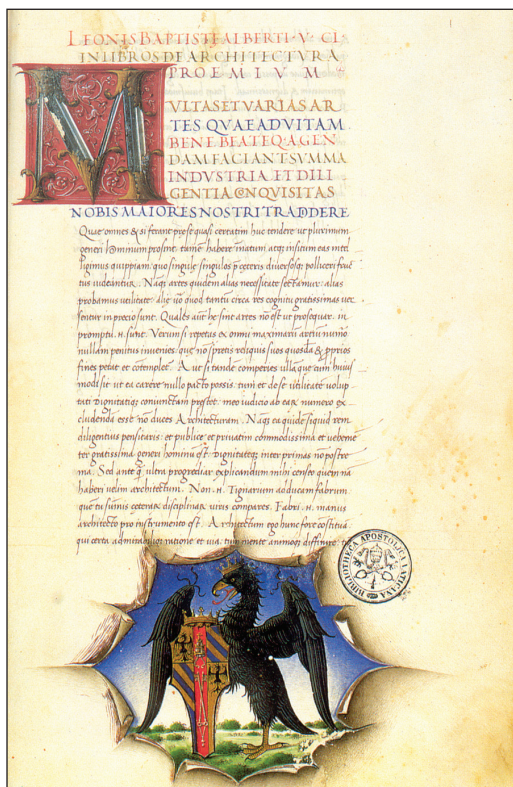 LEONIS BAPTISTE ALBERTI · V · CI
IN LIBROS DE ARCHITECTVRA
PROEMIVM
M
VLTAS ET VARIAS AR
TES QVAE AD VITAM
BENE BEATEQ AGEN
DAM FACIANT SVMMA
INDVSTRIA ET DILI
GENTIA CONQVISITAS
NOBIS MAIORES NOSTRI TRADIDERE
Quae omnes & si ferant prese quasi certatim huc tendere ut plurimum
generi hominum prosint. tamē habere innatum atq; insitum eas intel
ligimus quippiam: quo singulę singulos p̄ ceteris diversosq; polliceri fruc
tus videantur. Nāq; artes quidem alias necessitate sectamur: alias
probamus utilitate: alię vō quod tantū circa res cognitu gratissimas ver
sentur in precio sunt. Quales aūt hę sint artes nō est ut prosequar. in
promptu .n. sunt. Verum si repetas ex omni maximarū artiū numō
nullam penitus invenies: quę nō spretis reliquis suos quosdā & pprios
fines petat et cōtemplet. Aut si tandē comperies ullā quę cum huius
modi sit ut ea carere nullo pacto possis. tum et de se utilitatē volup
tati dignitatiq; coniunctam prestet: meo iudicio ab eaꝝ numero ex
cludendā esse nō duces Architecturam. Nāq; ea quidē siquid rem
diligentius pensitaris: et publice et privatim commodissima et vehemē
ter gratissima generi hominū est: dignitateq; inter primas nō postre
ma. Sed ante q̄ ultra progrediar explicandum mihi censeo quem nā
haberi velim architectum. Non .n. Tignarium adducam fabrum
que tu sūmis ceterarꝝ disciplinarꝝ viris compares. Fabri .n. manus
architecto pro instrumento est. Architectum ego hunc fore cōstituā
qui certa admirabiliq; ratione et via. tum mente animoq; diffinire: tū
BIBLIOTHECA APOSTOLICA VATICANA